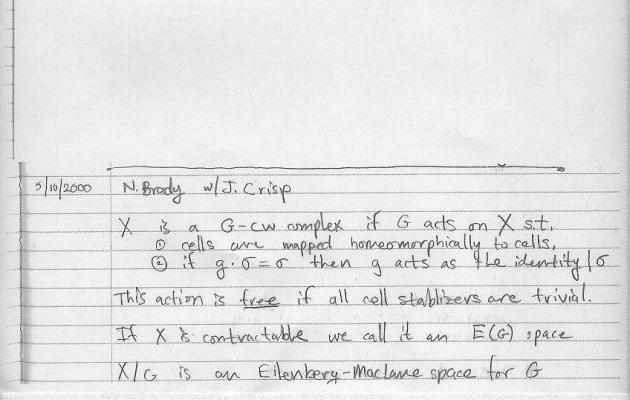 5/10/2000 N. Brady w/ J. Crisp
X is a G-CW complex if G acts on X s.t.
① cells are mapped homeomorphically to cells,
② if g·σ=σ then g acts as the identity/σ
This action is free if all cell stablizers are trivial.
If X is contractable we call it an E(G) space
X/G is an Eilenberg-Maclane space for G